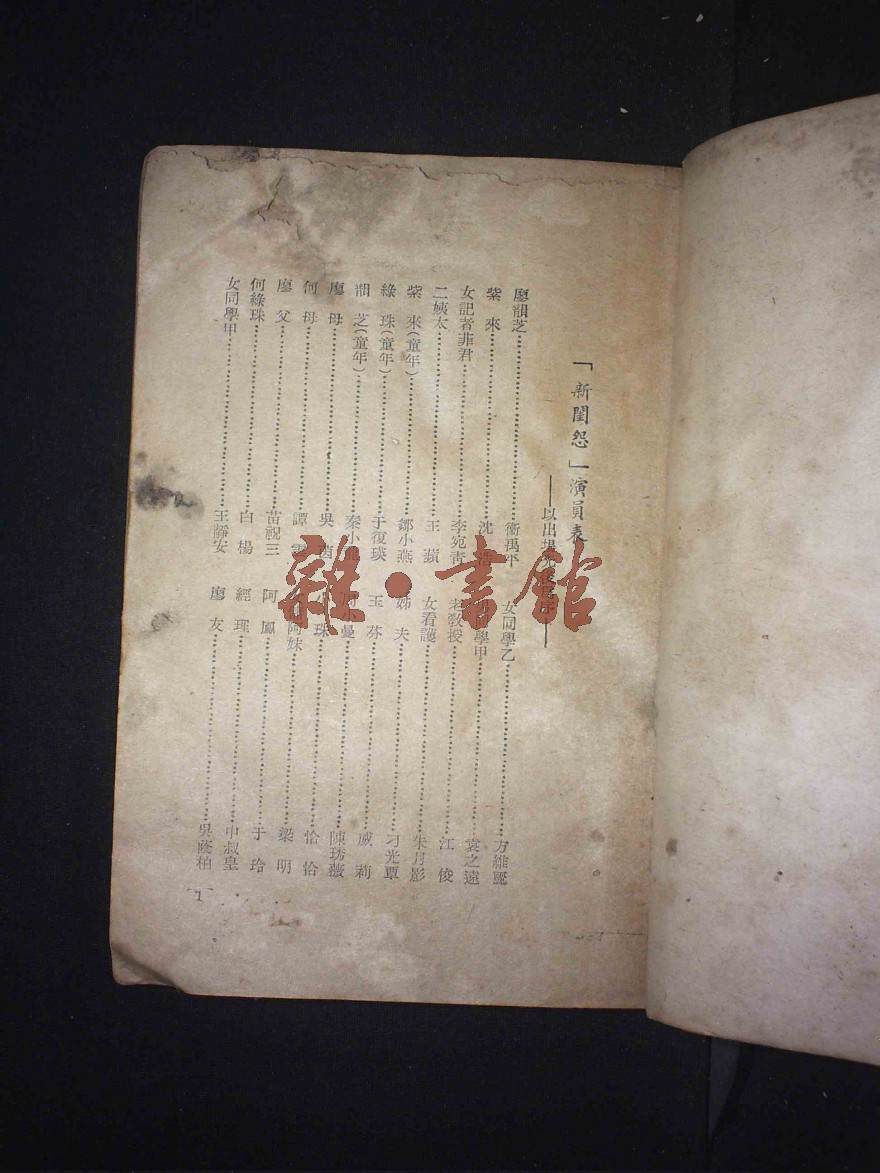 「新閨怨」演員表
——以出場先後爲序——
廖韻芝……衞禹平
紫來……沈浩
女記者菲君……李宛青
二姨太……王蘋
紫來(童年)……鄒小燕
綠珠(童年)……于復瑛
韻芝(童年)……秦小龍
廖母……吳茵
何母……譚雲
廖父……苗祝三
何綠珠……白楊
女同學甲……王靜安
女同學乙……方維
同學甲……袁之遠
老敎授……江俊
女看護……朱月影
姊夫……刁光覃
玉芬……威莉
曼……陳琇薇
小珠……恰恰
阿妹……梁明
阿鳳……于玲
經理……申叔皇
廖友……吳蔭柏
1
雜·書館